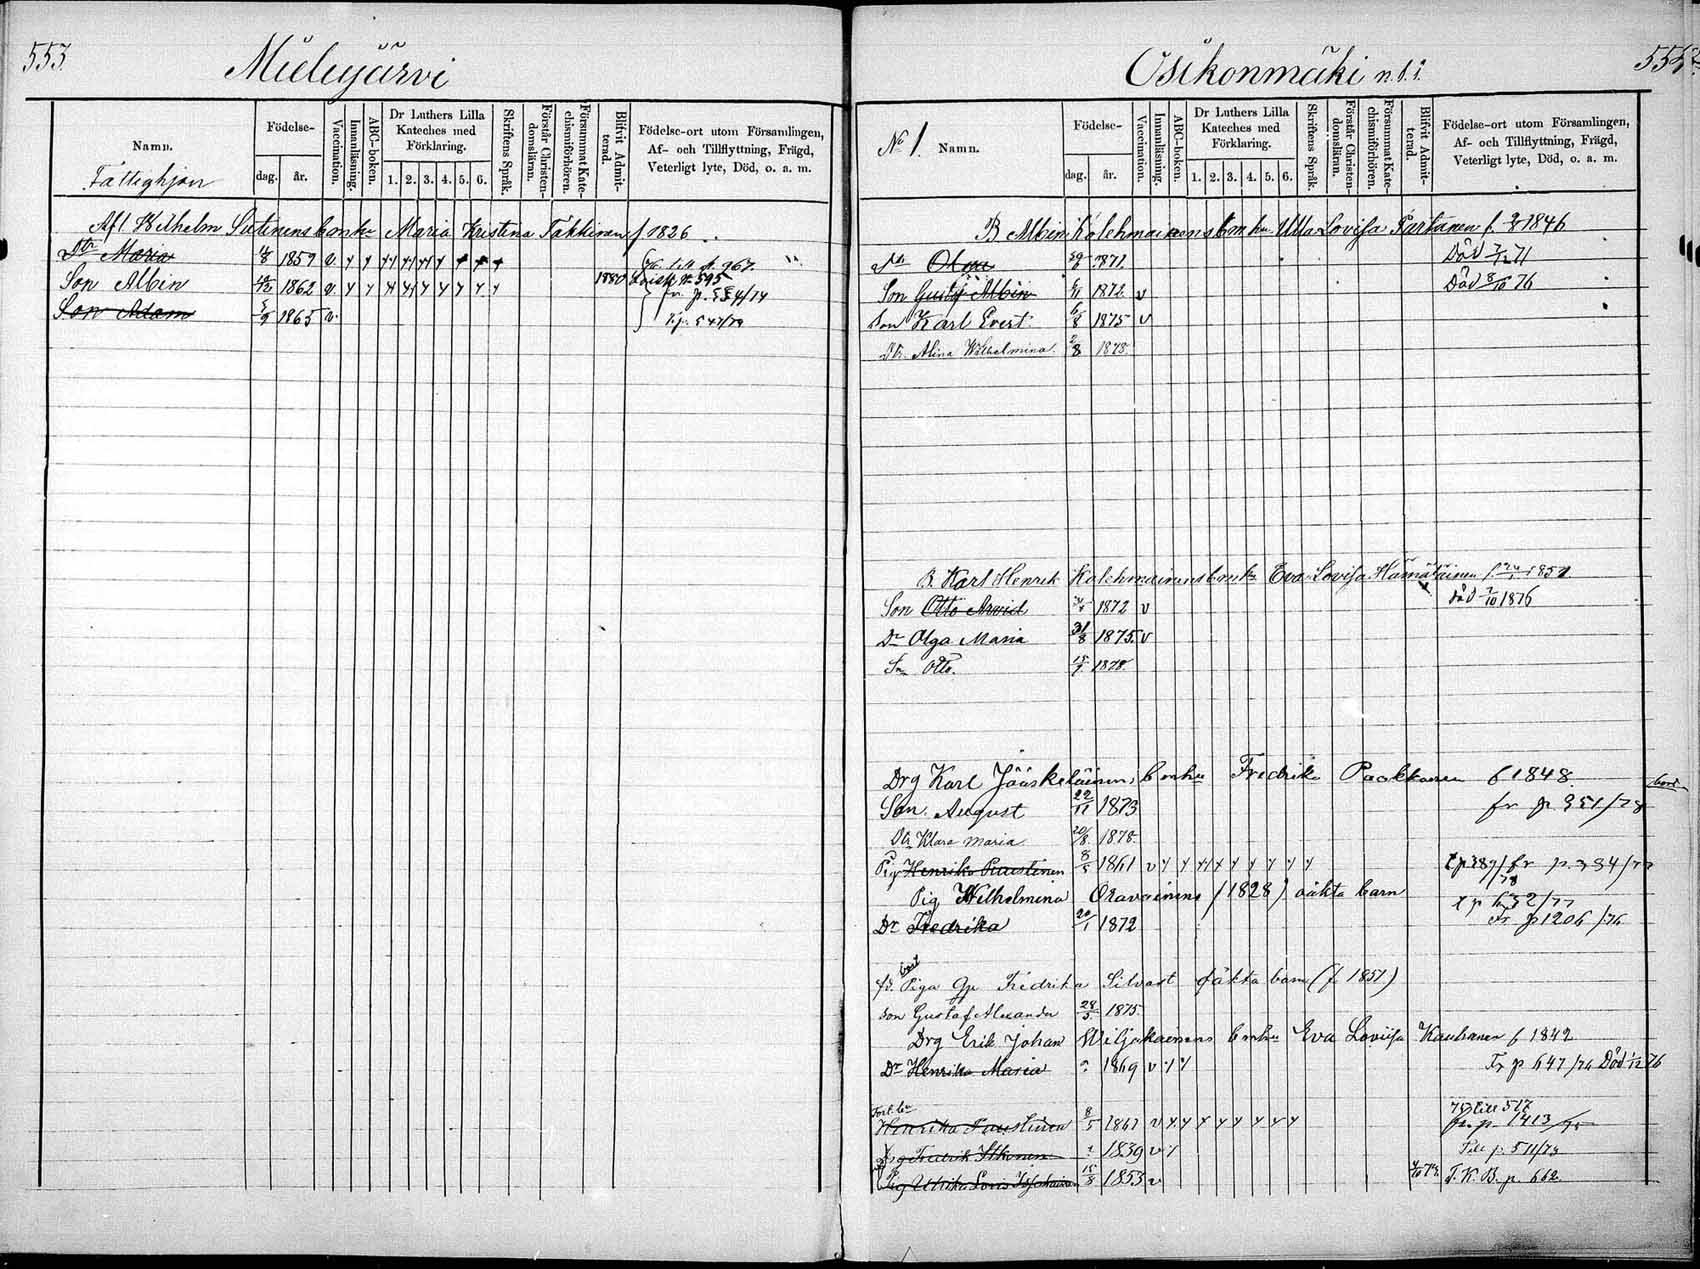 553.
Mielujärvi
Namn.
Fattighjon
Födelse-
dag. år.
Vaccination.
Innanläsning.
ABC-boken.
Dr Luthers Lilla Kateches med Förklaring.
1. 2. 3. 4. 5. 6.
Skriftens Språk.
Förstår Christen-domslärnn.
Försummat Kate-chismiförhören.
Blifvit Admit-terad.
Födelse-ort utom Församlingen,
Af- och Tillflyttning, Frägd,
Veterligt lyte, Död, o. a. m.
Afl. Wilhelm Sutinens b enka Maria Kristina Takkinen f 1826
Dtr Maria 1859 v
Son Albin 1862 v 1880 N 595
fr. p. 554/74
Son Adam 1865 v. T. p. 547/79
Osikonmäki n. 61.
No 1. Namn.
Födelse-
dag. år.
Vaccination.
Innanläsning.
ABC-boken.
Dr Luthers Lilla Kateches med Förklaring.
1. 2. 3. 4. 5. 6.
Skriftens Språk.
Förstår Christen-domslärnn.
Försummat Kate-chismiförhören.
Blifvit Admit-terad.
Födelse-ort utom Församlingen,
Af- och Tillflyttning, Frägd,
Veterligt lyte, Död, o. a. m.
B Albin Kolehmainens b m hu Ulla Lovisa Partanen f. 1846
Dr Olga 1871. Död 7/12 71
Son Gustaf Albin 1872 v Död 8/10 76
Son Karl Evert 6/8 1875 v
Dtr. Alina Wilhelmina 2/8 1878.
B. Karl Henrik Kolehmainens b m hu Eva Lovisa Hämäläinen f. 1851
Son Otto Arvid 1872 v Död 7/10 1876
Dr Olga Maria 31/8 1875. v
Son Otto. 15/7 1878.
Drg Karl Jääskeläinens b m hu Fredrika Paakkunen f 1848
Son August 22/11 1873 fr p 351/78
Dtr Klara Maria 20/8 1878.
Pig Henrika Puustinen 8/5 1861 v fr p. 384/77
Pig Wilhelmina Oravainens (1828) oäkta barn
Dr Fredrika 20/1 1872 Fr p 1206/76
bort
Piga Fredrika Silvast oäkta barn (f. 1851)
Son Gustaf Alexander 28/3 1875.
Drg Erik Johan Wiljakainens b m hu Eva Lovisa Kauhanen f 1842
Dr Henrika Maria 1869 v Fr p 647/76 Död 1/12 76
Henrika Puustinen 8/5 1861 v till 517
fr. p. 1413
Drg Fredrik Itkonen 1839 v Till p. 511/73
Pig Ulrika Lovis 15/8 1853 v T. K. B. p. 662